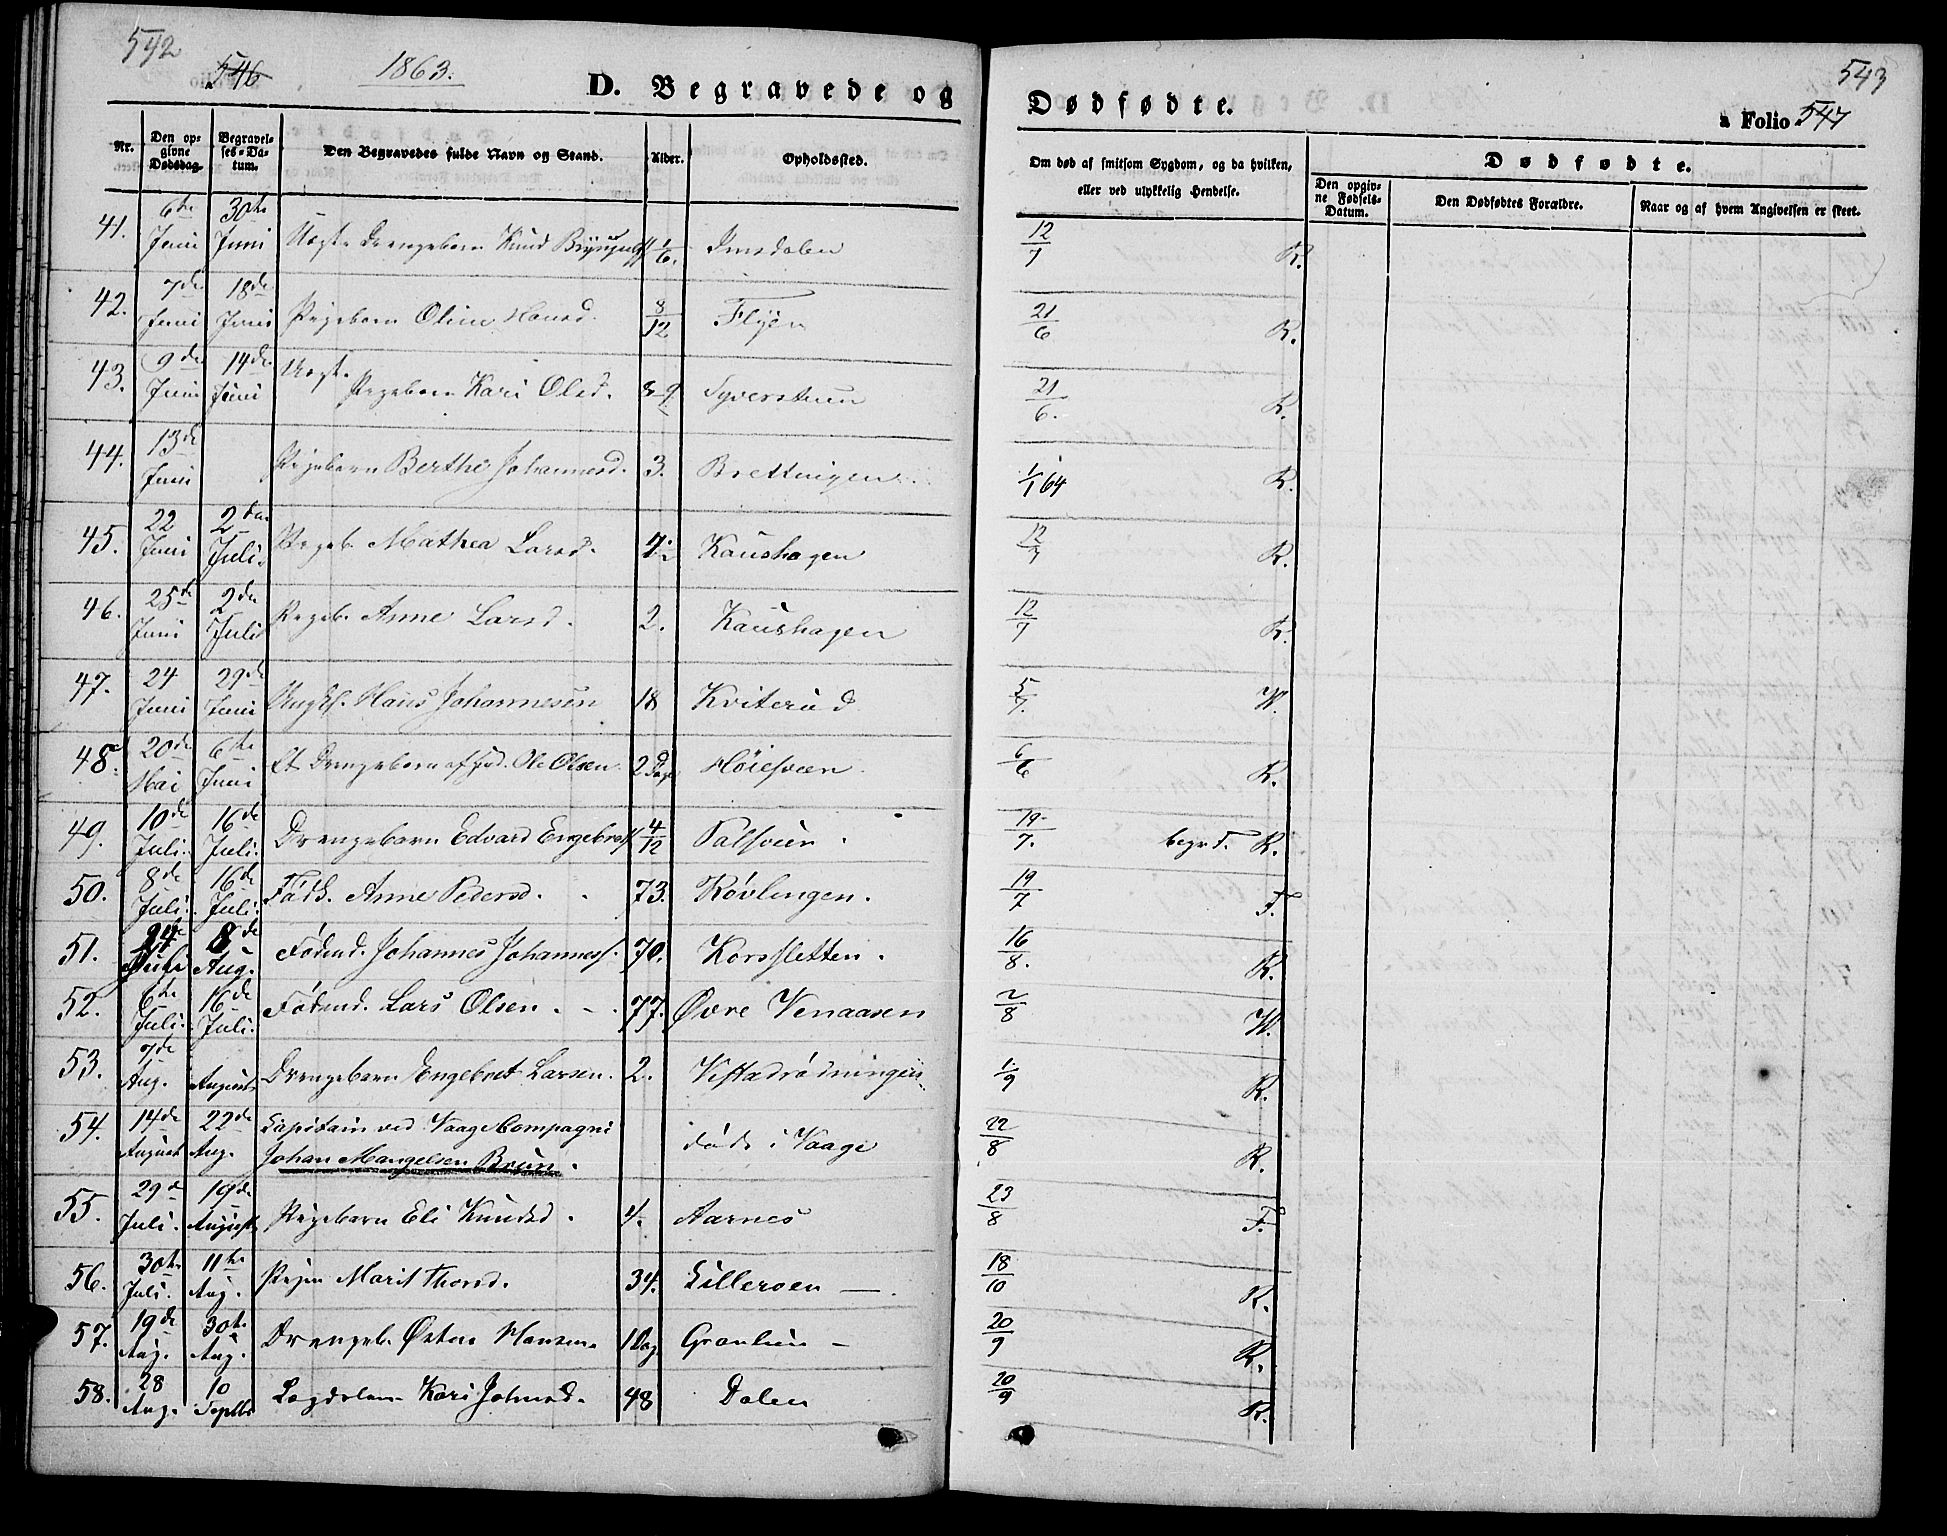 542
546
1863.
D. Begravede og
Nr.
Den opgivne Dødsdag.
Begravelses-Datum.
Den Begravedes fulde Navn og Stand.
Alder.
Opholdssted.
41. 6te Juni 30te Juni Drengebarn Knud
42. 7de Juni 18de Juni Pigebarn Oline Hansd. 8/12 Flyen
43. 9de Juni 14de Juni Uegt. Pigebarn Kari Olsd. Syverstuen
44. 13de Juni Pigebarn Berthe Johannesd. 3. Brettingen
45. 22 Juni 2den Juli. Pigeb. Mathea Larsd. Kaushagen
46. 25de Juni 2den Juli Pigeb. Anne Larsd. 2. Kaushagen
47. 24 Juni 29de Juni Ungk. Hans Johannesen 18 Kviterud
48. 20de Mai 6te Juni Et Drengebarn af Ole Olsen 2 Dage
49. 10de Juli. 16de Juli. Drengebarn Edvard Engebretss. 4/12
50. 8de Juli. 16de Juli. Anne Pedersd. 73. Røvlingen.
51. 24de Juli 8de Aug. Føderd. Johannes Johanness. 70. Korssletten.
52. 6te Juli. 16de Juli. Føderd. Lars Olsen. 77. Øvre Venaasen
53. 7de Aug. August Drengebarn Engebret Larsen. 2.
54. 14de August 22de Aug. Capitain ved Vaage Compagni død i Vaage
Johan Mangelsen Brun.
55. 29de Juli. 19de August Pigebarn Eli Knudsd. 4. Aarnes
56. 30te Juli. 11te Aug. Pigen Marit Thorsd. 34. Lilleroen
57. 19de Aug. 30te Aug. Drengeb. Østen Hansen. 1 Dag
58. 28 Aug. 10 Septbr Lægdslem Kari Johnsd. 48 Dalen
Dødfødte.
543
a Folio 547
Om død af smitsom Sygdom, og da hvilken,
eller ved ulykkelig Hendelse.
Dødfødte.
Den opgivne Fødsels-Datum.
Den Dødfødtes Forældre.
Naar og af hvem Angivelsen er skeet.
12/7 R.
21/6 R.
21/6. R.
1/1 64 R.
12/7 R.
12/7 R.
5/7. W.
6/6 R.
19/7. begr. F. R.
19/7 F.
16/8. R.
2/8 W.
1/9 R.
22/8 R.
23/8 F.
18/10 R.
20/9 R.
20/9 R.